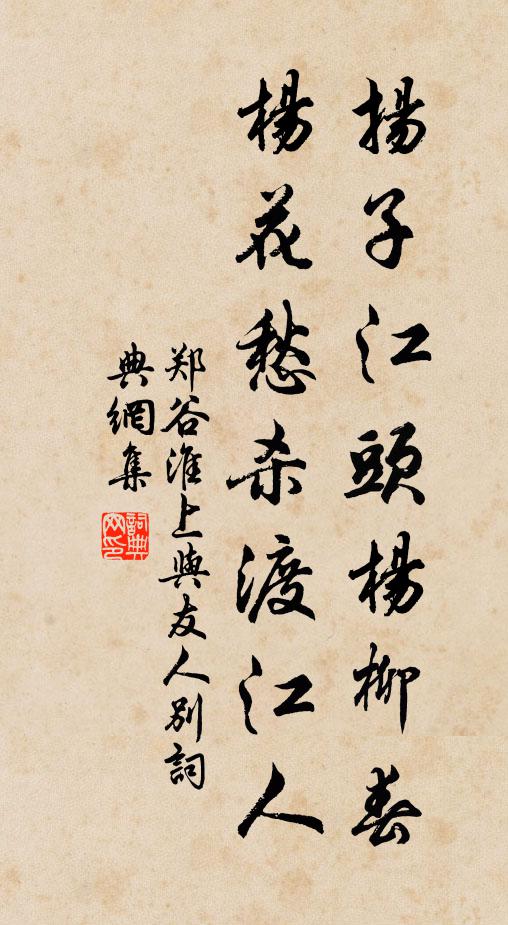 揚子江頭楊柳春
楊花愁杀渡江人
郑谷淮上與友人别詞
典網集
詞典
网印